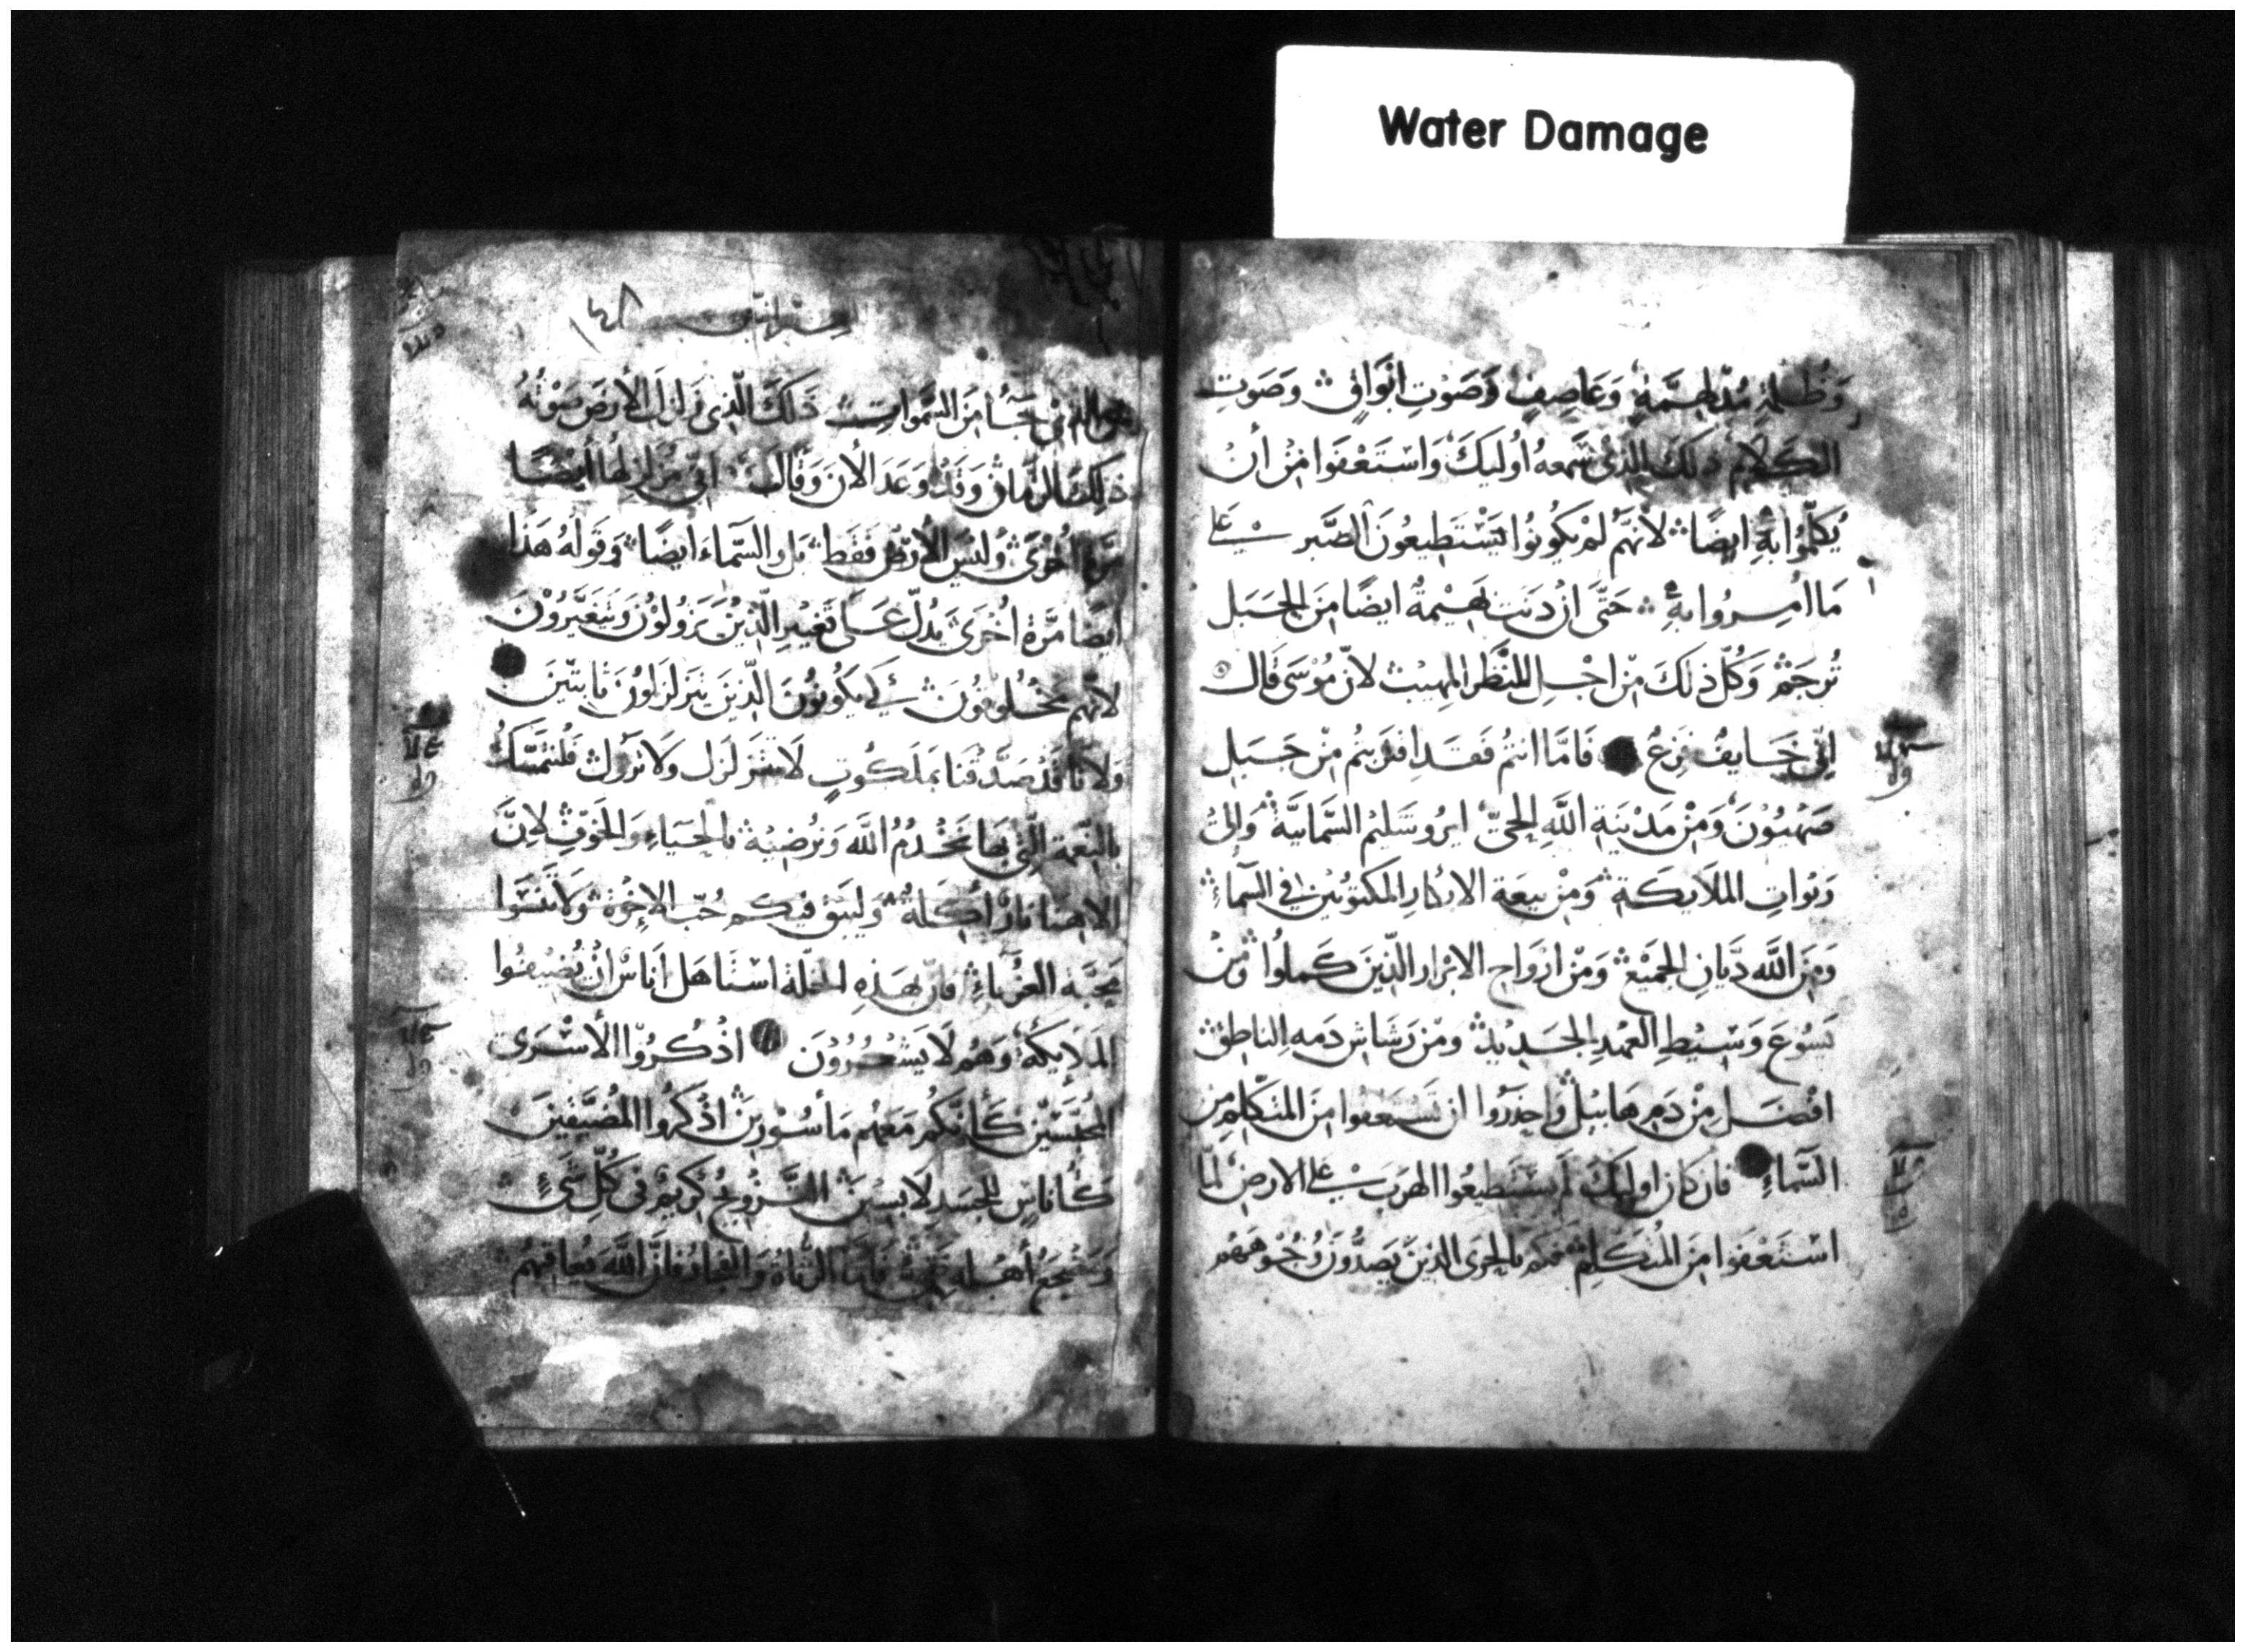 Water Damage
وَظُلمَةٍ مُدْلَهِمَّةٍ وَعَاصِفٍ وَصَوْتِ ابْوَاقٍ وَصَوتِ
الكَلَامِ ذلكَ الذِي سَمعهُ أوليكَ وَاسْتَعْفَوا مِنْ أنْ
يُكلَّمُوا بهِ ايضًا لأنهَّم لَمْ يَكُونُوا يَسْتَطِيعُونَ الصَّبر عَلى
مَا امِرُوا بهِ حَتَّى انْ دَنَت بَهِيْمةٌ ايضًا مِنَ الجَبَل
تُرجَمْ وَكُلّ ذلَكَ مِنْ اجْلِ المنْظَر المهيْب لانّ مُوْسَى قَال
اِنِّي خَايفٌ فَزِعٌ فَامَّا انتُم فقَد اقتربتُم مِنْ جَبَلِ
صَهْيُوْنَ وَمِنْ مَدْينَةِ اللَّهِ الحَيّ ايرُوشَليم السَّمَايَّةِ وَالىُ
رَبواتِ الملَايكَة وَمِنْ بيعَة الابْكارِ المكتوبيْنَ في السَّمآءِ
وَمِنَ اللَّه دَيَّانِ الجمَيْع وَمِنْ ارْوَاحِ الابْرار الذِينَ كَملوا وَمِنْ
يَسُوعَ وَسْيْطِ العَهْدِ الجَديْدِ وَمنْ رَشَاشِ دَمهِ الناطِقْ
افْضَل مِنْ دَمِ هَابيْل وَاحذرُوا ان تَسْتعفوا مِنَ المتَكَلِّمِ مِن
السَّمآءِ فان كانَ اوليكَ لَم يستَطيعُوا الهرَبَ عَلى الارضِ لما
اسْتَعْفَوا مِنَ المُتَكَلِم فكم بالحرَى الذِينَ يَصدُّونَ وُجُوْهَهُم
العبرانيين ١٤٨
عن الذي جَآ مِنَ السَّمَواتِ ذَلكَ الّذِي زلزلَ الأرضَ صَوْتُهُ
ذلِكَ الزمَانْ وَقَدْ وَعَدَ الأن وَقَالَ انِّي مُزَلزلهَا أيضًا
مَرة اخْرَى وليْسَ الأرْضْ فقَط بَل والسّمآءَ ايضًا وَقولهُ هَذا
ايضًا مَرَّةً اخُرَىَ يدُلّ عَلى تَغييْر الّذِيْنَ يَزُولُوْن وَيَتغَيَّرُوْنَ
لانَّهم مخْلُوقُونَ لكَي يَكونُونَ الّذِينَ يتزلزلونَ ثابِتينَ
وَلانَّا قدْ صَدَّقنا بمَلَكُوتٍ لَا تتزَلزَل وَلا تزول فَلنتَمسَّكُ
بالنِّعْمة الّتي بهَا نخْدُمُ اللَّه وَنُرْضِيْه بالحيَآءِ وَالخَوفْ لِانَّ
الاهنا نارٌ أكِلةٌ وَليَبق فيكم حُبّ الإخْوَة وَلا تَنْسَوا
محبَّة الغُرَبآءِ فانّ بهَذهِ الخلّة استَاهَل أنَاسْ أنْ يُضيِّفُوا
المَلايكة وَهُم لَا يَشْعُرُوْنَ اذْكُروا الأسْرَى
المُحبَّسَيْن كَأنَّكُم مَعَهُم مَأسُوْرِينَ اذْكروا المُضيَّقيْنَ
كَأناسٍ للجسَدِ لَابسِينَ التَّزويجُ كَريمٌ في كُلّ شَيءٍ
وَمَضجعُ أهْله نقي فامَّا الزُناة وَالفجار فانَّ اللَّه يُعاقبُهم